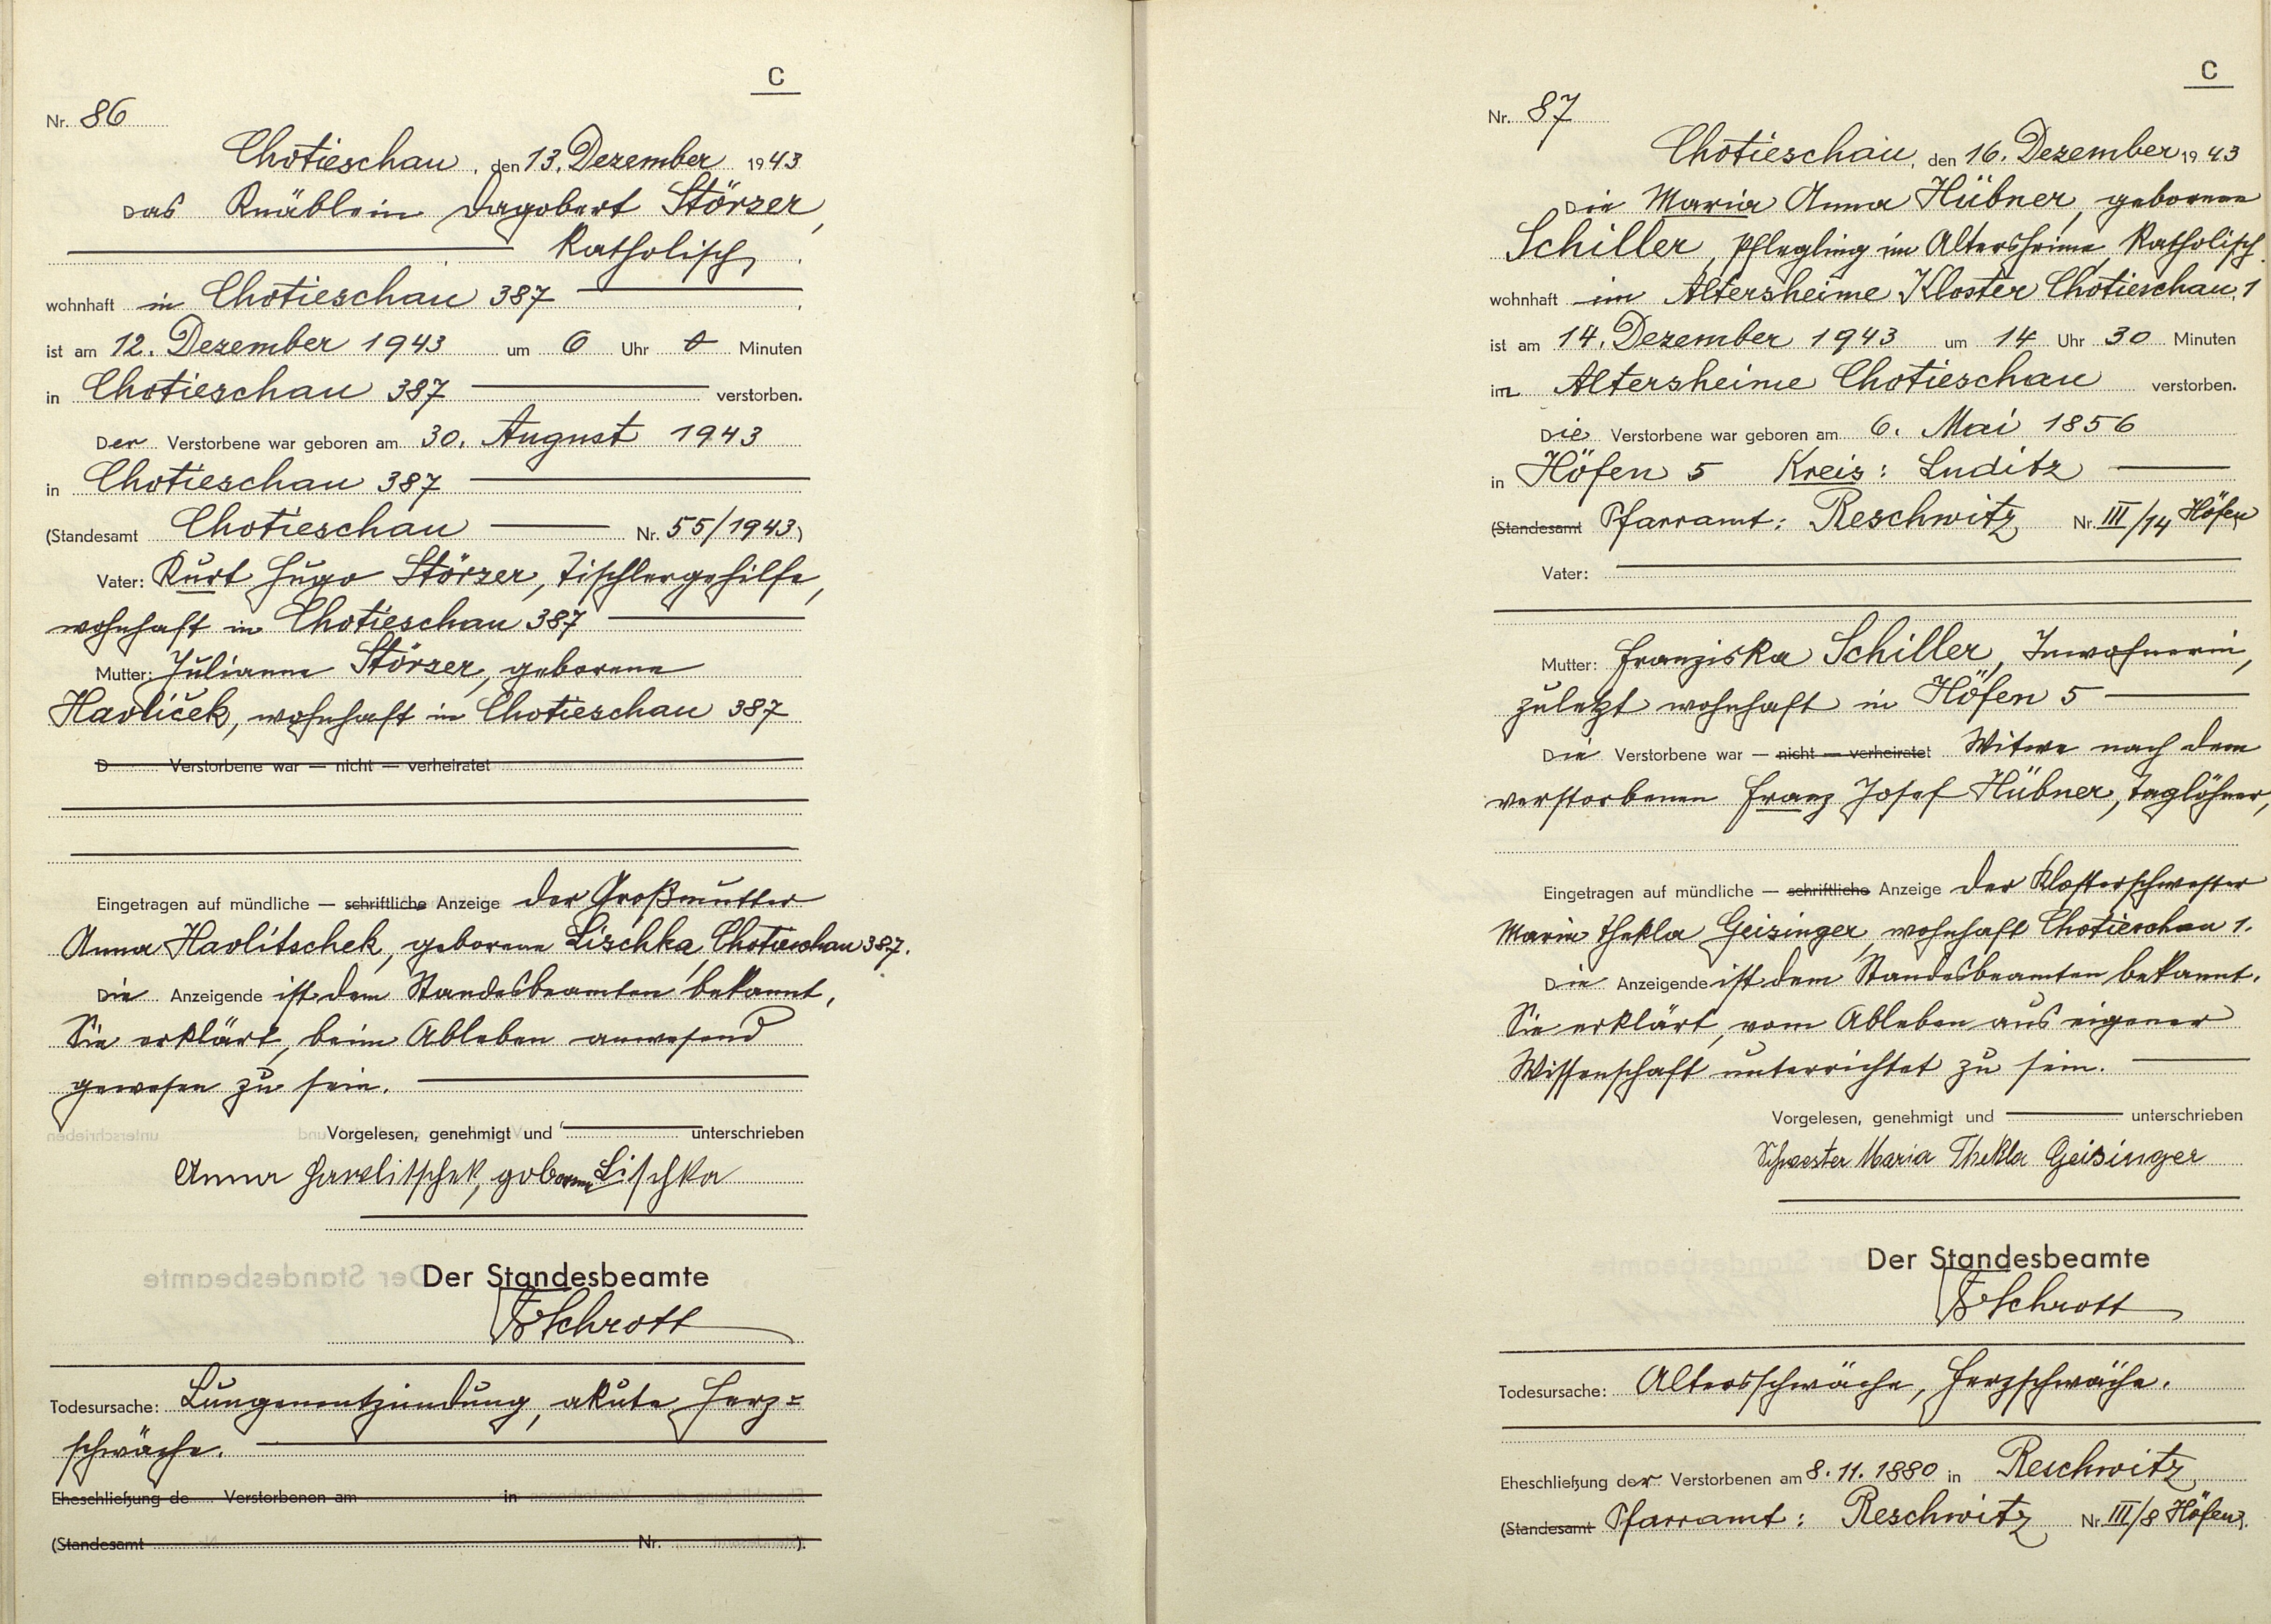 C
Nr. 86
Chotieschau, den 13. Dezember 1943
Das Knäblein Dagobert Störzer,
Katholisch.
wohnhaft in Chotieschau 387
ist am 12. Dezember 1943 um 6 Uhr 0 Minuten
in Chotieschau 387 verstorben.
Der Verstorbene war geboren am 30. August 1943
in Chotieschau 387
(Standesamt Chotieschau Nr. 55/1943)
Vater: Kurt Hugo Störzer, Tischlergehilfe,
wohnhaft in Chotieschau 387
Mutter: Julianne Störzer, geborene
Havliček, wohnhaft in Chotieschau 387
D Verstorbene war — nicht — verheiratet
Eingetragen auf mündliche — schriftliche Anzeige der Großmutter
Anna Havlitschek, geborene Lischka, Chotieschau 387.
Die Anzeigende ist dem Standesbeamten bekannt,
Sie erklärt, beim Ableben anwesend
gewesen zu sein.
Vorgelesen, genehmigt und unterschrieben
Anna Hawlitschek, geborene Lischka
Der Standesbeamte
Schrott
Todesursache: Lungenentzündung, akute Herz=
schwäche.
Eheschließung de Verstorbenen am in
(Standesamt Nr. ).
C
Nr. 87
Chotieschau, den 16. Dezember 1943
Die Maria Anna Hübner, geborene
Schiller, Pflegling im Altersheime, Katholisch.
wohnhaft im Altersheime Kloster Chotieschau, 1
ist am 14. Dezember 1943 um 14 Uhr 30 Minuten
im Altersheime Chotieschau verstorben.
Die Verstorbene war geboren am 6. Mai 1856
in Höfen 5 Kreis: Luditz
(Standesamt Pfarramt: Reschwitz Nr. III/14 Höfen)
Vater:
Mutter: Franziska Schiller, Inwohnerin,
zuletzt wohnhaft in Höfen 5
Die Verstorbene war — nicht — verheiratet Witwe nach dem
verstorbenen Franz Josef Hübner, Taglöhner,
Eingetragen auf mündliche — schriftliche Anzeige der Klosterschwester
Maria Thekla Geisinger, wohnhaft Chotieschau 1.
Die Anzeigende ist dem Standesbeamten bekannt.
Sie erklärt, vom Ableben aus eigener
Wissenschaft unterrichtet zu sein.
Vorgelesen, genehmigt und unterschrieben
Schwester Maria Thekla Geisinger
Der Standesbeamte
Schrott
Todesursache: Altersschwäche, Herzschwäche.
Eheschließung der Verstorbenen am 8.11.1880 in Reschwitz
(Standesamt Pfarramt: Reschwitz Nr. III/8 Höfen).